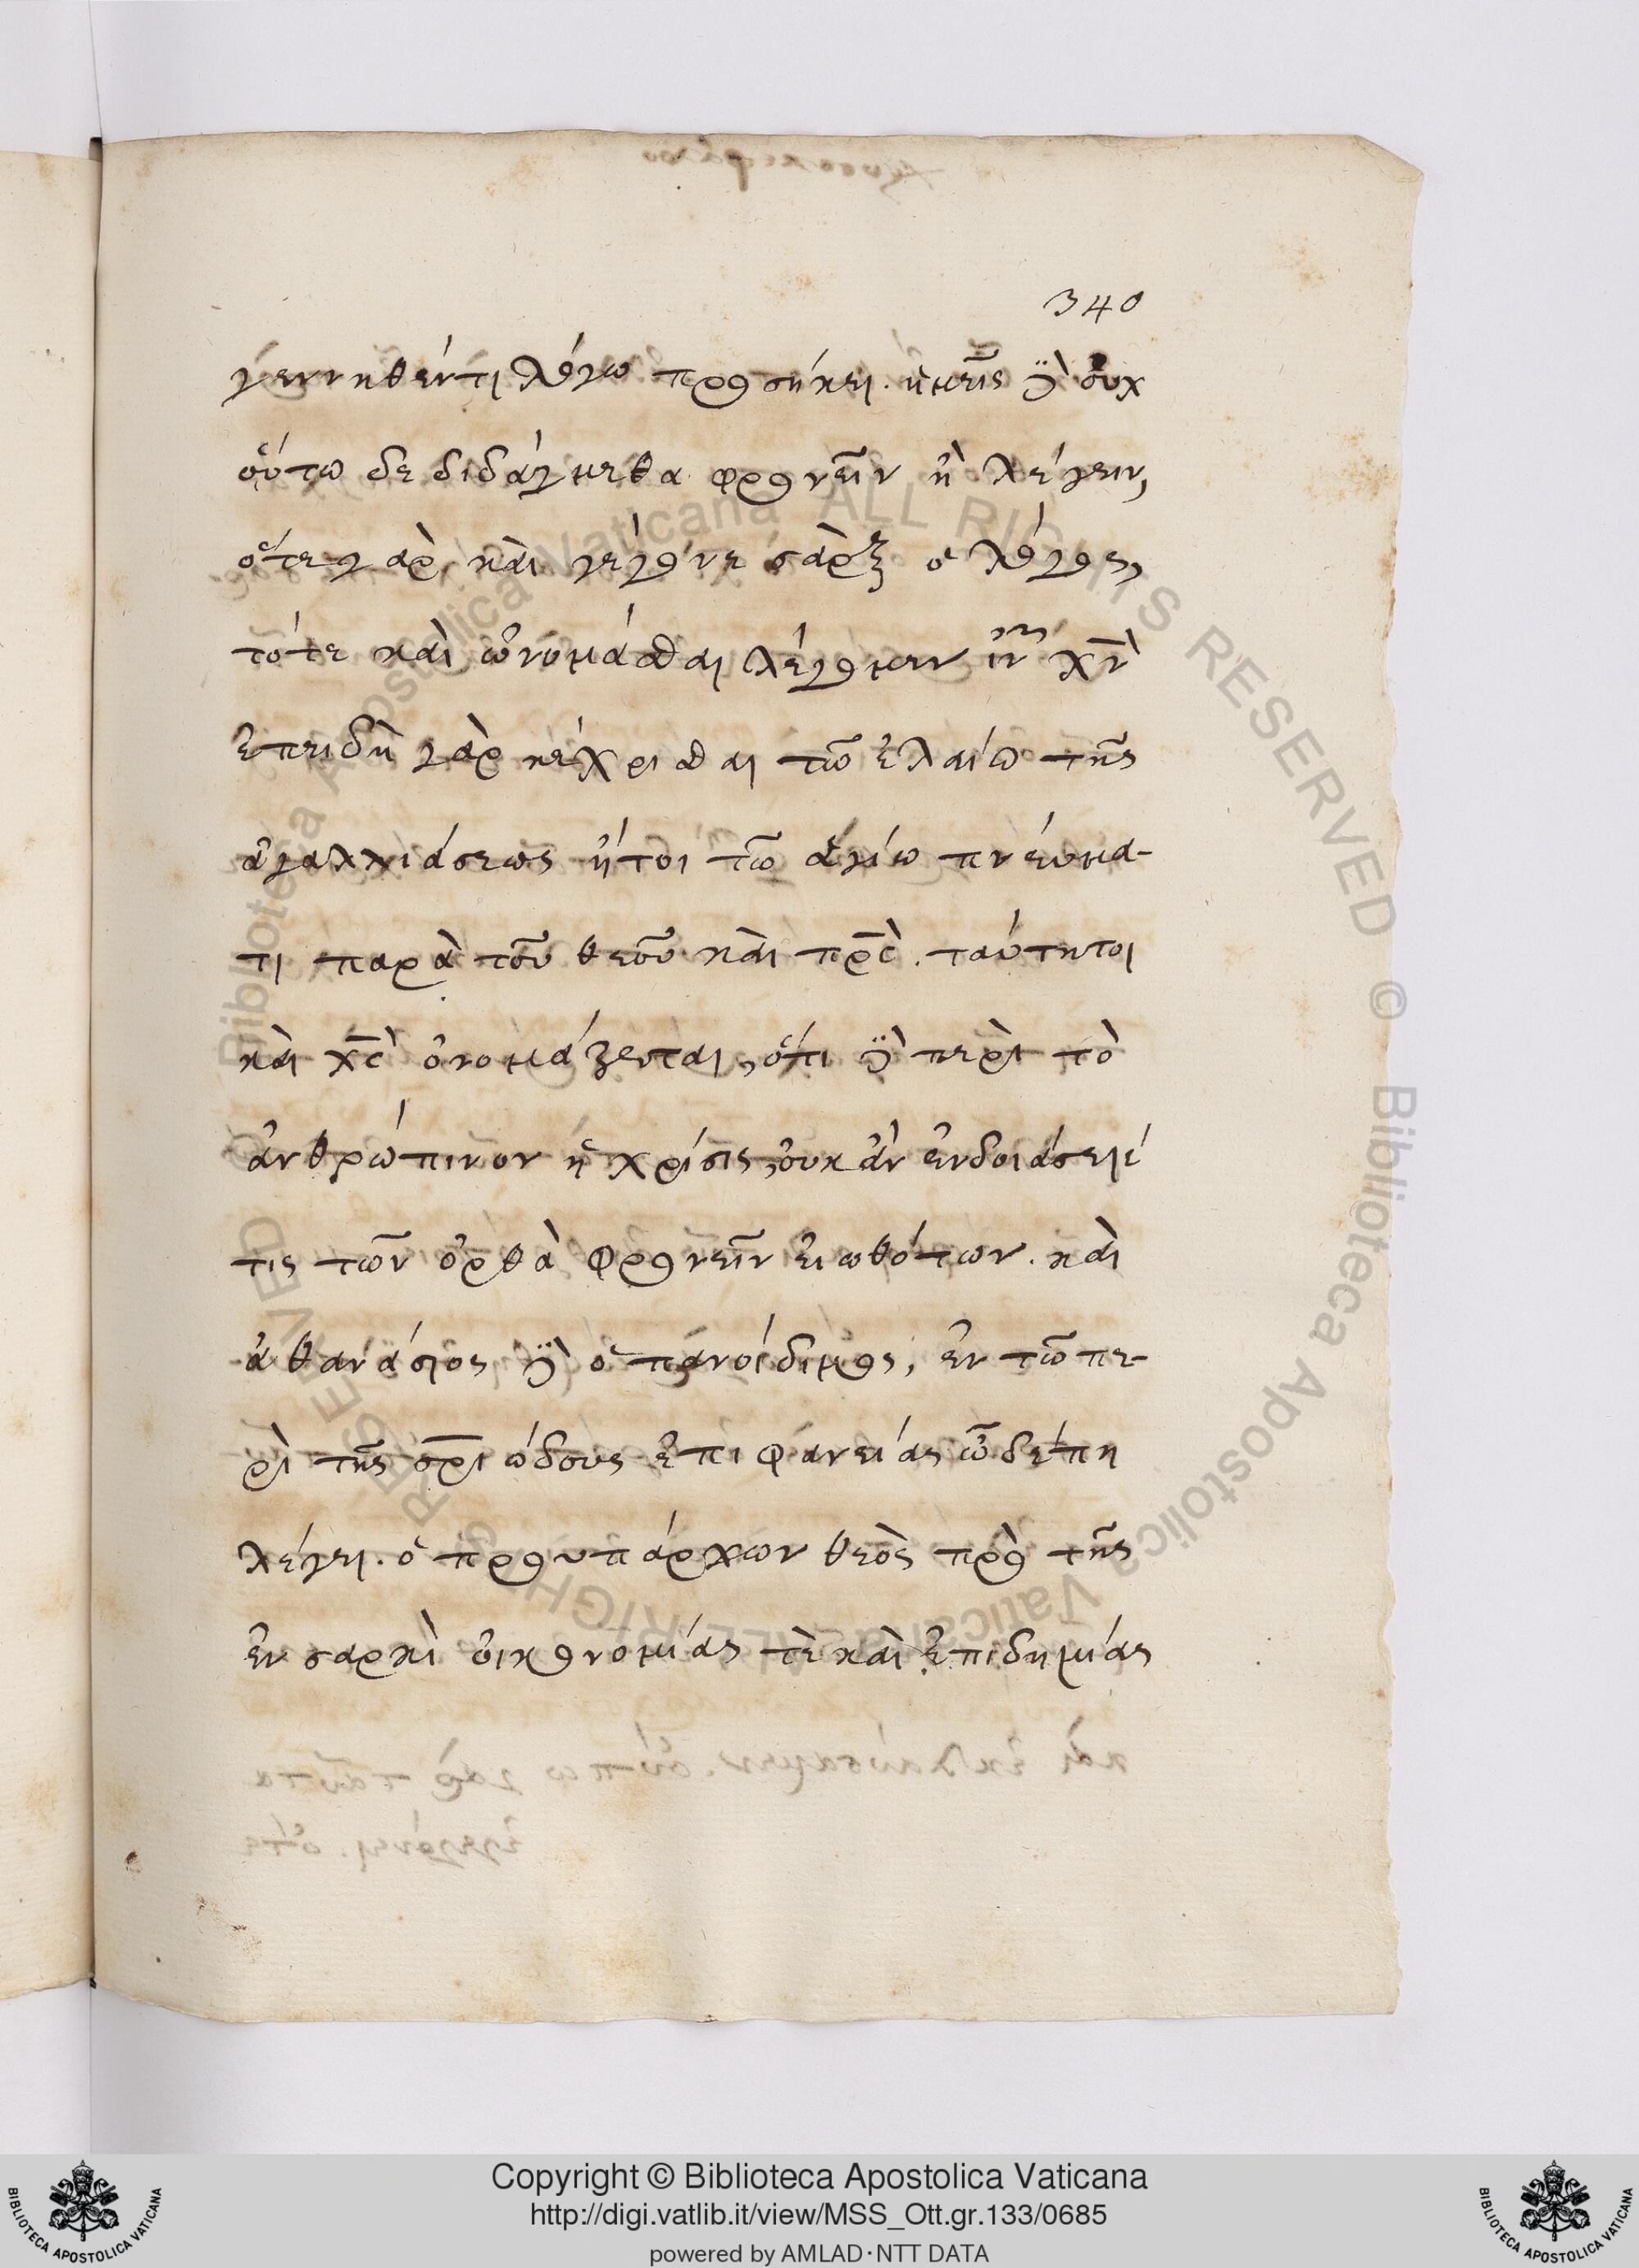 340
γεννηθέντι λόγω προσήκει. ἡμεῖς δὲ οὐχ
οὕτω δεδιδάγμεθα φρονεῖν ἢ λέγειν,
ὅτε γὰρ καὶ γέγονε σὰρξ ὁ λόγος,
τότε καὶ ὠνομάσθαι λέγομεν ιν χν
ἐπειδὴ γὰρ κέχρισθαι τῶ ἐλαίω τῆς
ἀγαλλιάσεως ἤτοι τῶ ἁγίω πνέυμα-
τι παρὰ τοῦ θεοῦ καὶ πρς. ταύτητοι
καὶ χς ὀνομάζεται, ὅτι δὲ περὶ τὸ
ἀνθρώπινον ἡ χρίσις, οὐκ ἂν ἐνδοιάσειέ
τις τῶν ὀρθὰ φρονεῖν εἰωθότων. καὶ
ἀθανάσιος δὲ ὁ πανοίδιμος, ἐν τῶ πε-
ρὶ τῆς σρκιώδους ἐπιφανείας ὧδέ πη
λέγει. ὁ προυπάρχων θεὸς πρὸ τῆς
ἐν σαρκὶ οἰκονομίας τὲ καὶ ἐπιδημίας
Copyright © Biblioteca Apostolica Vaticana
http://digi.vatlib.it/view/MSS_Ott.gr.133/0685
powered by AMLAD·NTT DATA
BIBLIOTECA APOSTOLICA VATICANA
BIBLIOTECA APOSTOLICA VATICANA
© Biblioteca Apostolica Vaticana ALL RIGHTS RESERVED © Biblioteca Apostolica Vaticana ALL RIGHTS RESERVED